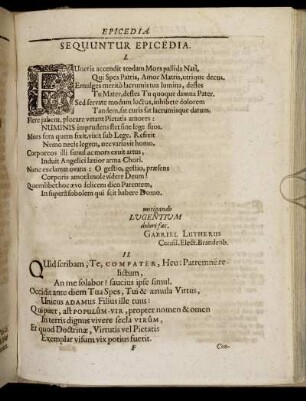 EPICEDIA.
SEQUUNTUR EPICEDIA.
I.
FUneria accendit tædam Mors pallida Nati,
Qui Spes Patris, Amor Matris, utrique decus.
Emulges meritò lacrumis tua lumina, defles
Tu Mater, defles Tu quoque damna Pater.
Sed servate modum luctus, inhibete dolorem
Tandem, sit curis sat lacrumisque datum.
Flere jubent, plorare vetant Pietatis amores:
NUMINIS imprudens flet sine lege furor.
Mors fera quem fixit, vicit sub Lege, Resixit
Nemo necis legem, nec variavit homo.
Corporeos illi simul ac mors exuit artus,
Induit Angelici latior arma Chori.
Nunc exclamat ovans: O gestio, gestio, præsens
Corporis amotâ mole videre Deum!
Quemlibet hoc ævo felicem dico Parentem,
In superis sobolem qui scit habere Domo.
mitigando
LUGENTIUM
dolori fac.
GABRIEL LUTHERUS
Consil. Elect. Brandenb.
II.
QUid scribam, Te, COMPATER, Heu! Patremnè relictum,
An me solabor? saucius ipse simul.
Occidit ante diem Tua Spes, Tui & æmula Virtus,
Unicus ADAMUS Filius ille tuus:
Qui puer, ast POPULÛM-VIR, propter nomen & omen
In terris dignus vivere secla VIRÛM,
Et quod Doctrinæ, Virtutis vel Pietatis
Exemplar visum vix potius fuerit.
F
Con-